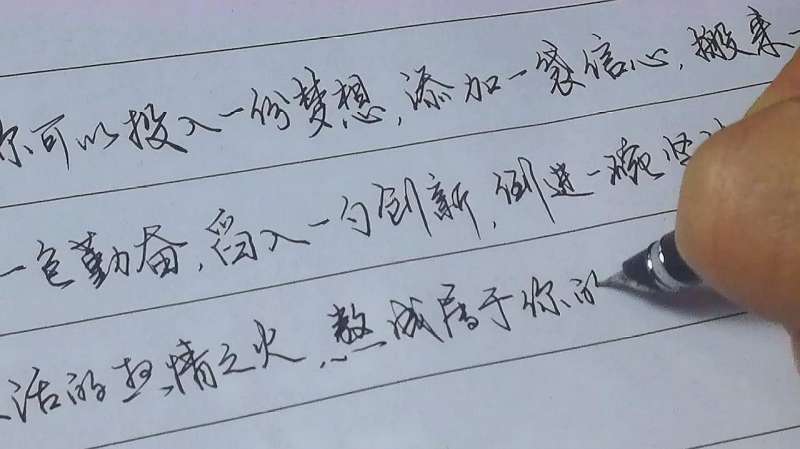 你可以投入一份梦想,添加一袋信心,搬来一
一包勤奋,舀入一勺创新,倒进一碗坚
活的热情之火,熬成属于你的